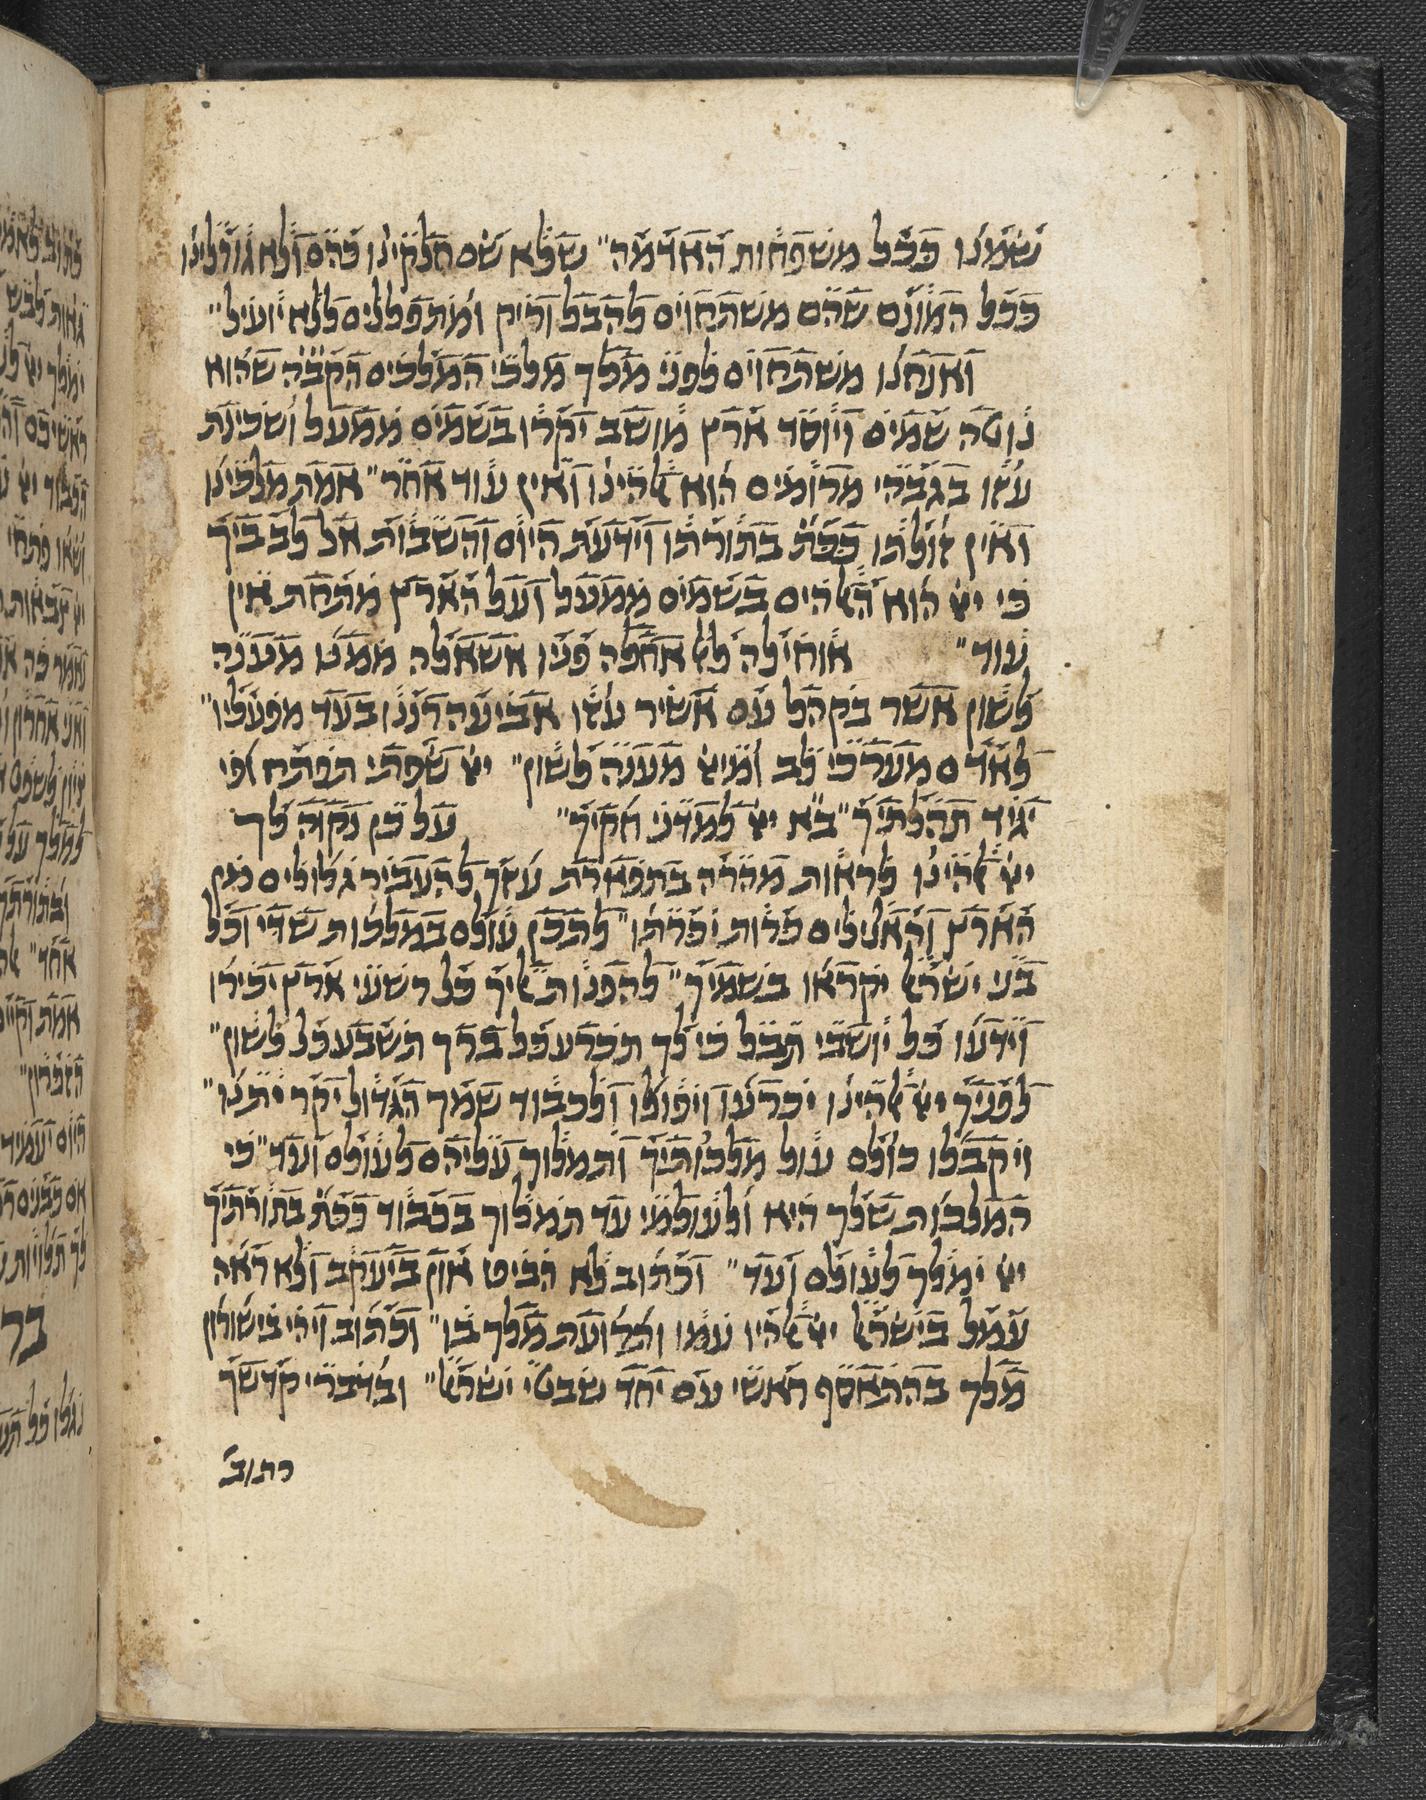 שמנו ככל משפחות האדמה״ שלא שם חלקינו כהם ולא גורלינו
ככל המונם שהם משתחוים להבל וריק ומתפללים ללא יועיל״
ואנחנו משתחוים לפני מלך מלכי המלכים הקבה שהוא
נוטה שמים ויוסד ארץ מושב יקרו בשמים ממעל ושכינת
עזו בגבהי מרומים הוא אלהינו ואין עוד אחר״ אמת מלכינו
ואין זולתו ככת׳ בתורתו וידעת היום והשבות אל לבביך
כי ייי הוא האלהים בשמים ממעל ועל הארץ מתחת אין
עוד״ אוחילה לאל אחלה פניו אשאלה ממנו מענה
לשון אשר בקהל עם אשיר עזו אביעה רננו בעד מפעליו״
לאדם מערכי לב ומייי מענה לשון״ ייי שפתי תפתח ופי
יגיד תהלתיך״ בא ייי למדני חקיך״ על כן נקוה לך
ייי אלהינו לראות מהרה בתפארת עזך להעביר גלולים מן
הארץ והאלילים כרות יכרתו״ לתכן עולם במלכות שדי וכל
בני ישראל יקראו בשמיך״ להפנות אליך כל רשעי ארץ יכירו
וידעו כל יושבי תבל כי לך תכרע כל ברך תשבע כל לשון״
לפניך ייי אלהינו יכרעו ויפולו ולכבוד שמך הגדול יקר יתנו״
ויקבלו כולם עול מלכותיך ותמלוך עליהם לעולם ועד״ כי
המלכות שלך היא ולעולמי עד תמלוך בכבוד ככת׳ בתורתיך
ייי ימלך לעולם ועד״ וכתוב לא הביט און ביעקב ולא ראה
עמל בישראל ייי אלהיו עמו ותרועת מלך בו״ וכתוב ויהי בישורון
מלך בהתאסף ראשי עם יחד שבטי ישראל״ ובדברי קדשך
כתוב